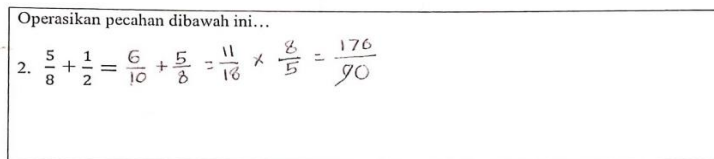 Operasikan pecahan dibawah ini...
2. 5/8 + 1/2 = 6/10 + 5/8 = 11/18 × 8/5 = 176/90